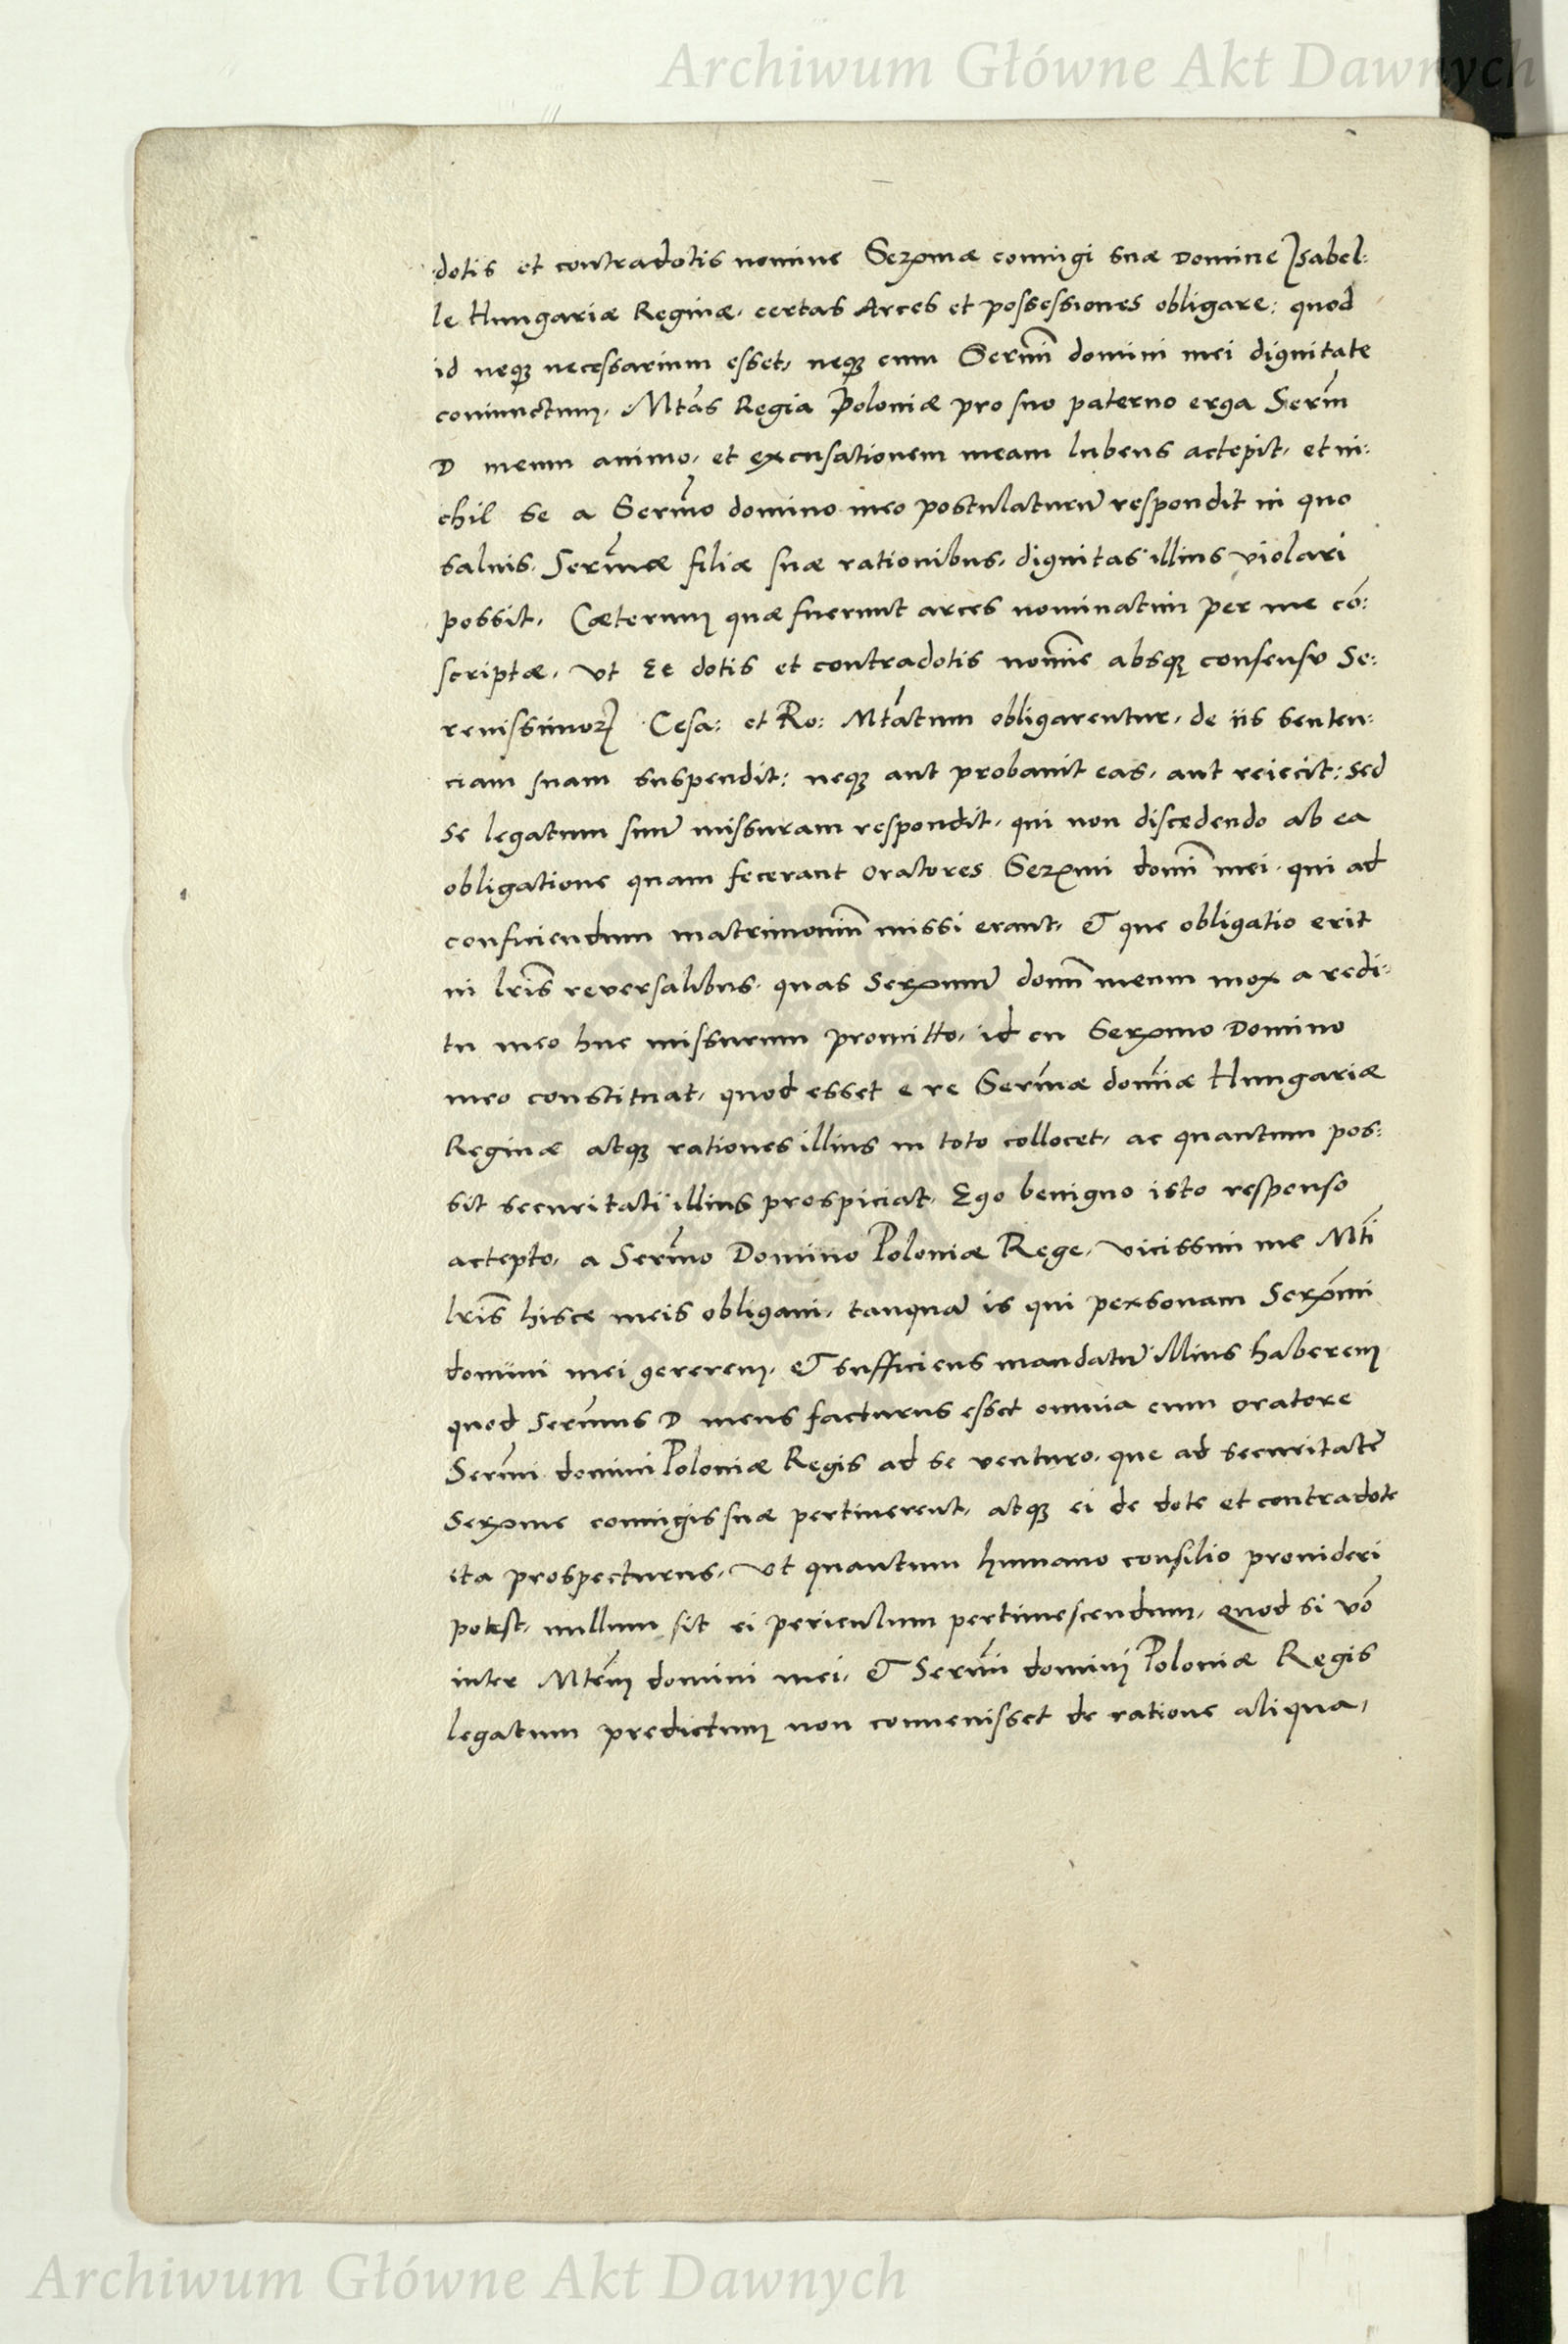 Archiwum Główne Akt Dawnych
dotis et contradotis nomine Serẋmæ coniugi suæ Domine Isabel:
le Hungariæ Reginæ, certas Arces et possessiones obligare: quod
id neqꝫ necessarium esset, neqꝫ cum Sermi̅ domini mei dignitate
coniunctum, Mta̅s Regia Poloniæ pro suo paterno erga Serm̅
D meum animo, et excusationem meam lubens accepit, et ni:
chil se a Serm̅o domino meo postulaturu̅ respondit in quo
saluis Serm̅æ filiæ suæ rationibus, dignitas illius violari
possit, Cæterum quæ fuerunt arces nominatim per me co̅:
scriptæ, vt Ee dotis et contradotis nomi̅e absqꝫ consensu Se:
renissimoꝝ Cesa: et Ro: Mta̅tum obligarentur, de iis senten:
ciam suam suspendit: neqꝫ aut probauit eas, aut reiecit: sed
se legatum suu̅ missuram respondit, qui non discedendo ab ea
obligatione quam fecerant oratores Serx̅mi domi̅ mei qui ad
conficiendum matrimoniu̅ missi erant, & que obligatio erit
in lr̅is reversalibus quas Serx̅mu̅ dom̅ meum mox a redi:
tu meo huc missurum promitto, id cu Serx̅mo Domino
meo constituat, quod esset e re Serm̅æ domi̅æ Hungariæ
Reginæ atqꝫ rationes illius in toto collocet, ac quantum pos:
sit securitati illius prospiciat, Ego benigno isto responso
accepto, a Serm̅o Domino Poloniæ Rege, vicissim me Mti̅
lr̅is hisce meis obligaui, tanqua̅ is qui personam Serx̅mi
domini mei gererem, & sufficiens mandatu̅ illius haberem
quod Serm̅us D meus facturus esset omnia cum oratore
Serm̅i domini Poloniæ Regis ad se venturo, que ad securitate̅
Serx̅me coniugis suæ pertinerent, atqꝫ ei de dote et contradote
ita prospecturus, vt quantum humano consilio prouideri
potest, nullum sit ei periculum pertimescendum, quod si vo̅
inter Mte̅m domini mei, & Serm̅i domini Poloniæ Regis
legatum predictum non conuenisset de ratione aliqua,
Archiwum Główne Akt Dawnych